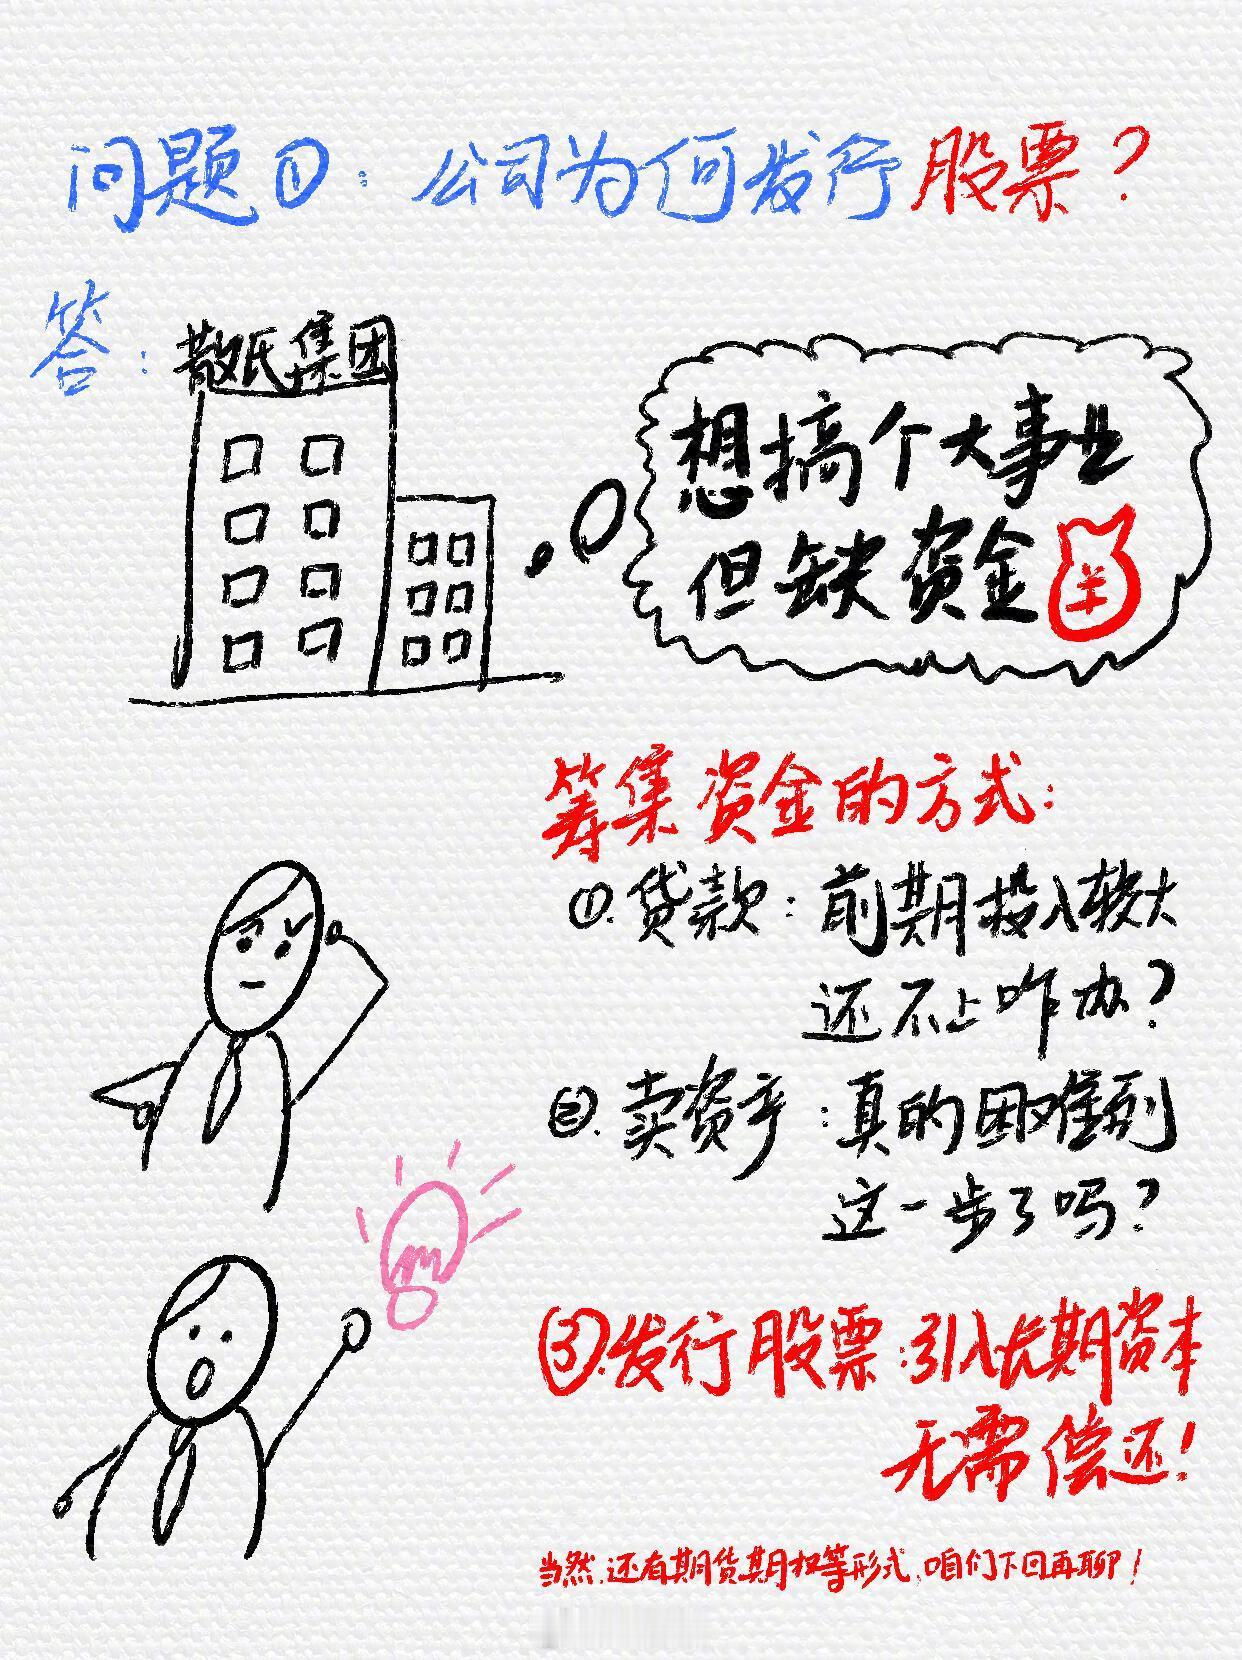 问题①：公司为何发行股票？
答：
散氏集团
想搞个大事业
但缺资金
羊
筹集资金的方式：
①.贷款：前期投入较大
还不上咋办？
②.卖资产：真的困难到
这一步了吗？
③发行股票：引入长期资本
无需偿还！
当然，还有期货期权等形式，咱们下回再聊！